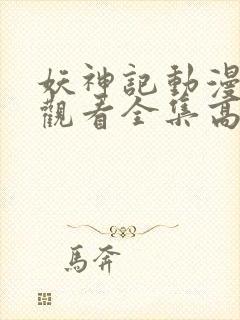 妖神記動漫
觀看全集高
馬奔